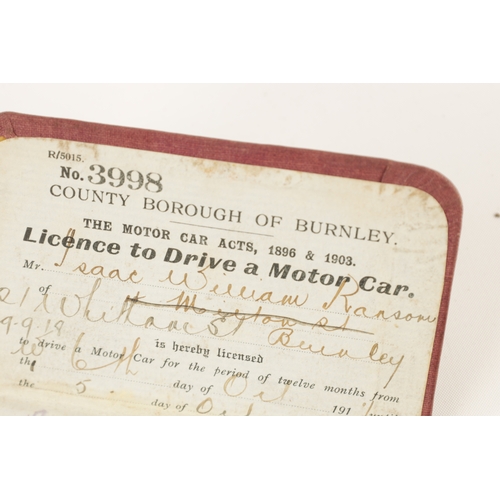 R/5015.
No. 3998
COUNTY BOROUGH OF BURNLEY.
THE MOTOR CAR ACTS, 1896 & 1903.
Licence to Drive a Motor Car.
Mr. Isaac William Ransom
of
St Burnley
is hereby licensed
to drive a Motor Car for the period of twelve months from
the 6th day of Oct 191
the 5 day of Oct